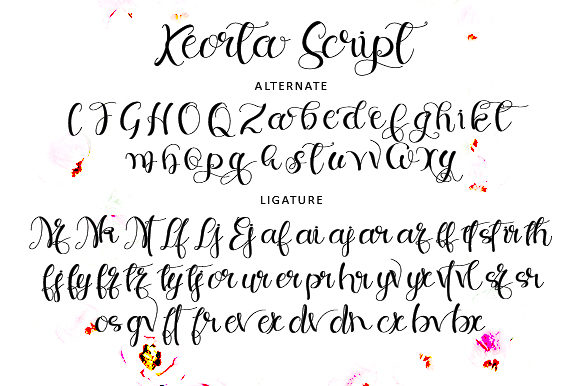 Keorta Script
ALTERNATE
C F G H O Q Z a b c d e f g h i k t
m h o p q a s t u v v w x y
LIGATURE
Nf Nk Nt Lf Lj Ej af ai aj ar or ff tf sf ir th
fj fy fz tz ty tj or ur er pr hr yv yx tv vl sz sr
os gv ft fr ev ex dv dn cx bv bx